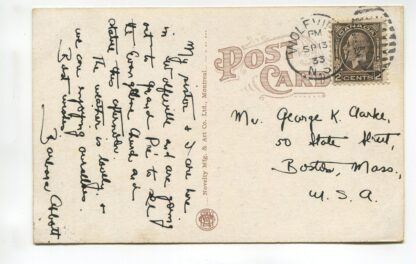 My sister & I are here
in Wolfville and are going
out to Grand Pre to see
the Evangeline Church and
statue this afternoon.
The weather is lovely &
we are enjoying ourselves.
Best wishes.
Barbara Abbott
Novelty Mfg. & Art Co., Ltd., Montreal.
POST
CARD
WOLFVILLE
PM
SP 13
33
N.S.
CANADA
2 CENTS 2
Mr. George K. Clarke,
50 State Street,
Boston, Mass.,
U.S.A.